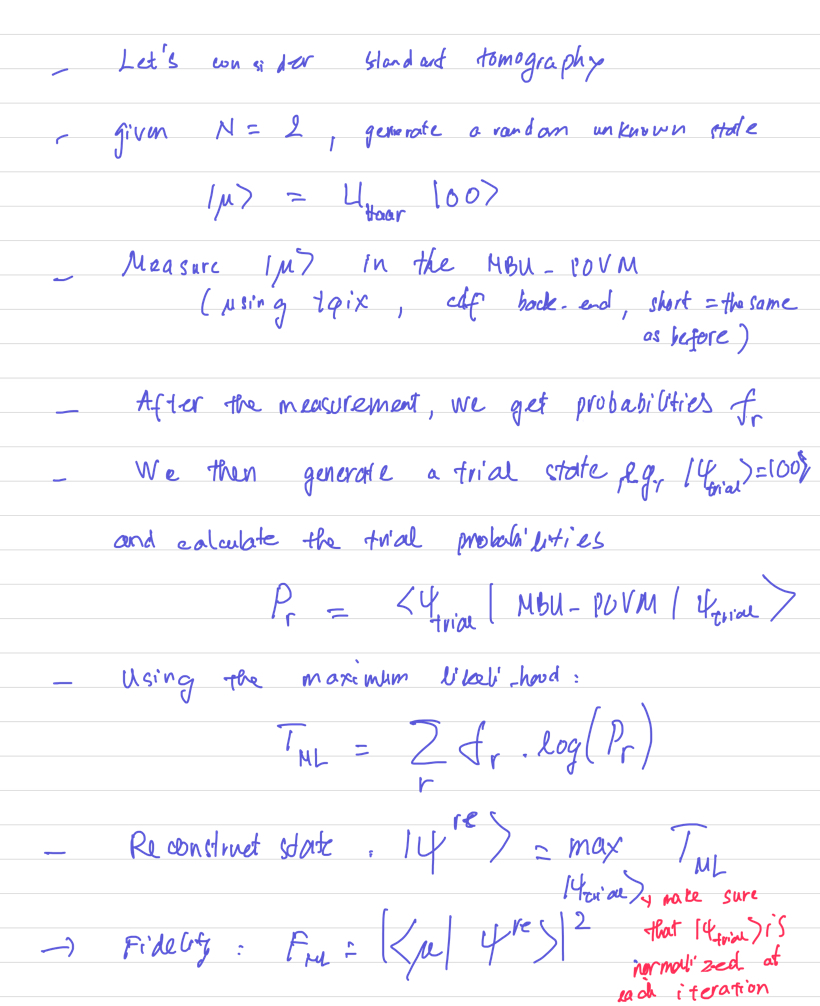 - Let's consider standard tomography
- given N = 2, generate a random unknown state
|μ> = U_Haar |00>
- Measure |μ> in the MBU-POVM
(using tqix, cdf back-end, short = the same
as before)
- After the measurement, we get probabilities f_r
- We then generate a trial state, e.g., |ψ_trial> = |00>
and calculate the trial probabilities
P_r = <ψ_trial | MBU-POVM | ψ_trial>
- Using the maximum likeli-hood:
T_ML = Σ_r f_r . log(P_r)
- Reconstruct state. |ψ^re> = max_|ψ_trial> T_ML
→ make sure
that |ψ_trial> is
normalized at
each iteration
→ Fidelity: F_ML = |<μ| ψ^re>|^2